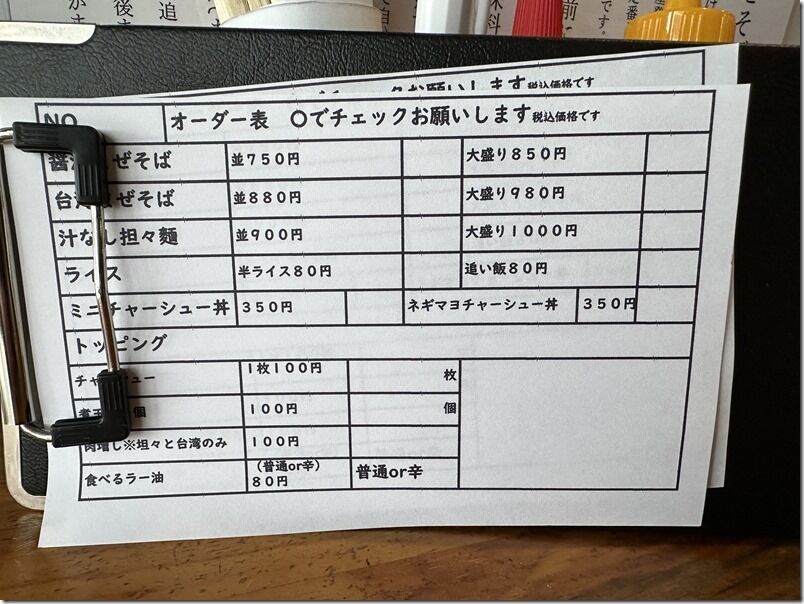 追
後
前に
です。
NO
オーダー表 〇でチェックお願いします税込価格です
ぜそば 並750円 大盛り850円
ぜそば 並880円 大盛り980円
汁なし担々麺 並900円 大盛り1000円
ライス 半ライス80円 追い飯80円
ミニチャーシュー丼 350円 ネギマヨチャーシュー丼 350円
トッピング
チャーシュー 1枚100円 枚
個 100円 個
肉増し※坦々と台湾のみ 100円
食べるラー油 (普通or辛) 80円 普通or辛